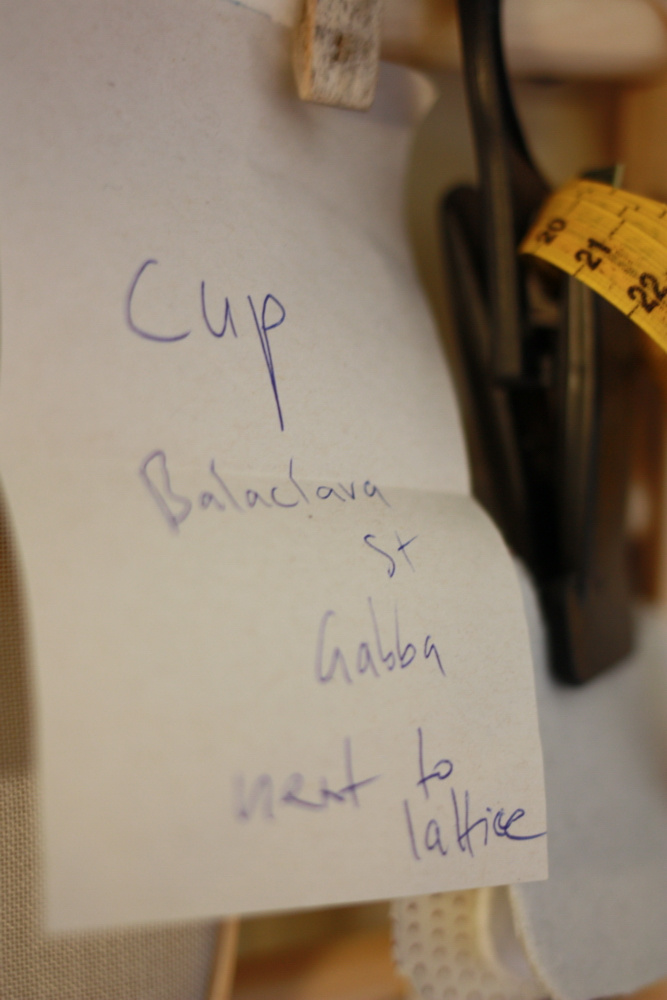 Cup
Balaclava
St
Gabba
next to
lattice
20 21 22